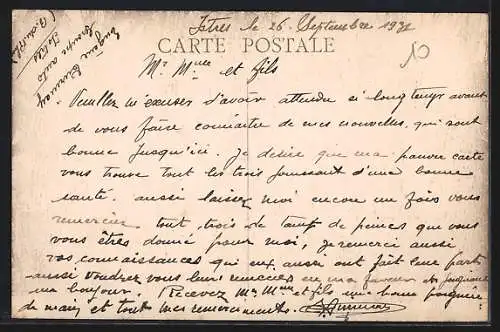 Istres le 26 Septembre 1931
CARTE POSTALE
10
Eugène
groupe auto
Istres
Mr Mme et fils
Veuillez m'excuser d'avoir attendu si longtemps avant
de vous faire connaitre de mes nouvelles, qui sont
bonne jusqu'ici. Je désire que ma pauvre carte
vous trouve tout les trois jouissant d'une bonne
santé. aussi laissez moi encore une fois vous
remercier tout, trois de tant de peines que vous
vous êtres donné pour moi, je remerci aussi
vos connaissances qui eux aussi ont fait leur part
aussi voudrez vous leur remercier en ma faveur
ma bonjour. Recevez Mr Mme et fils une bonne poignée
de main et tout mes remerciements.